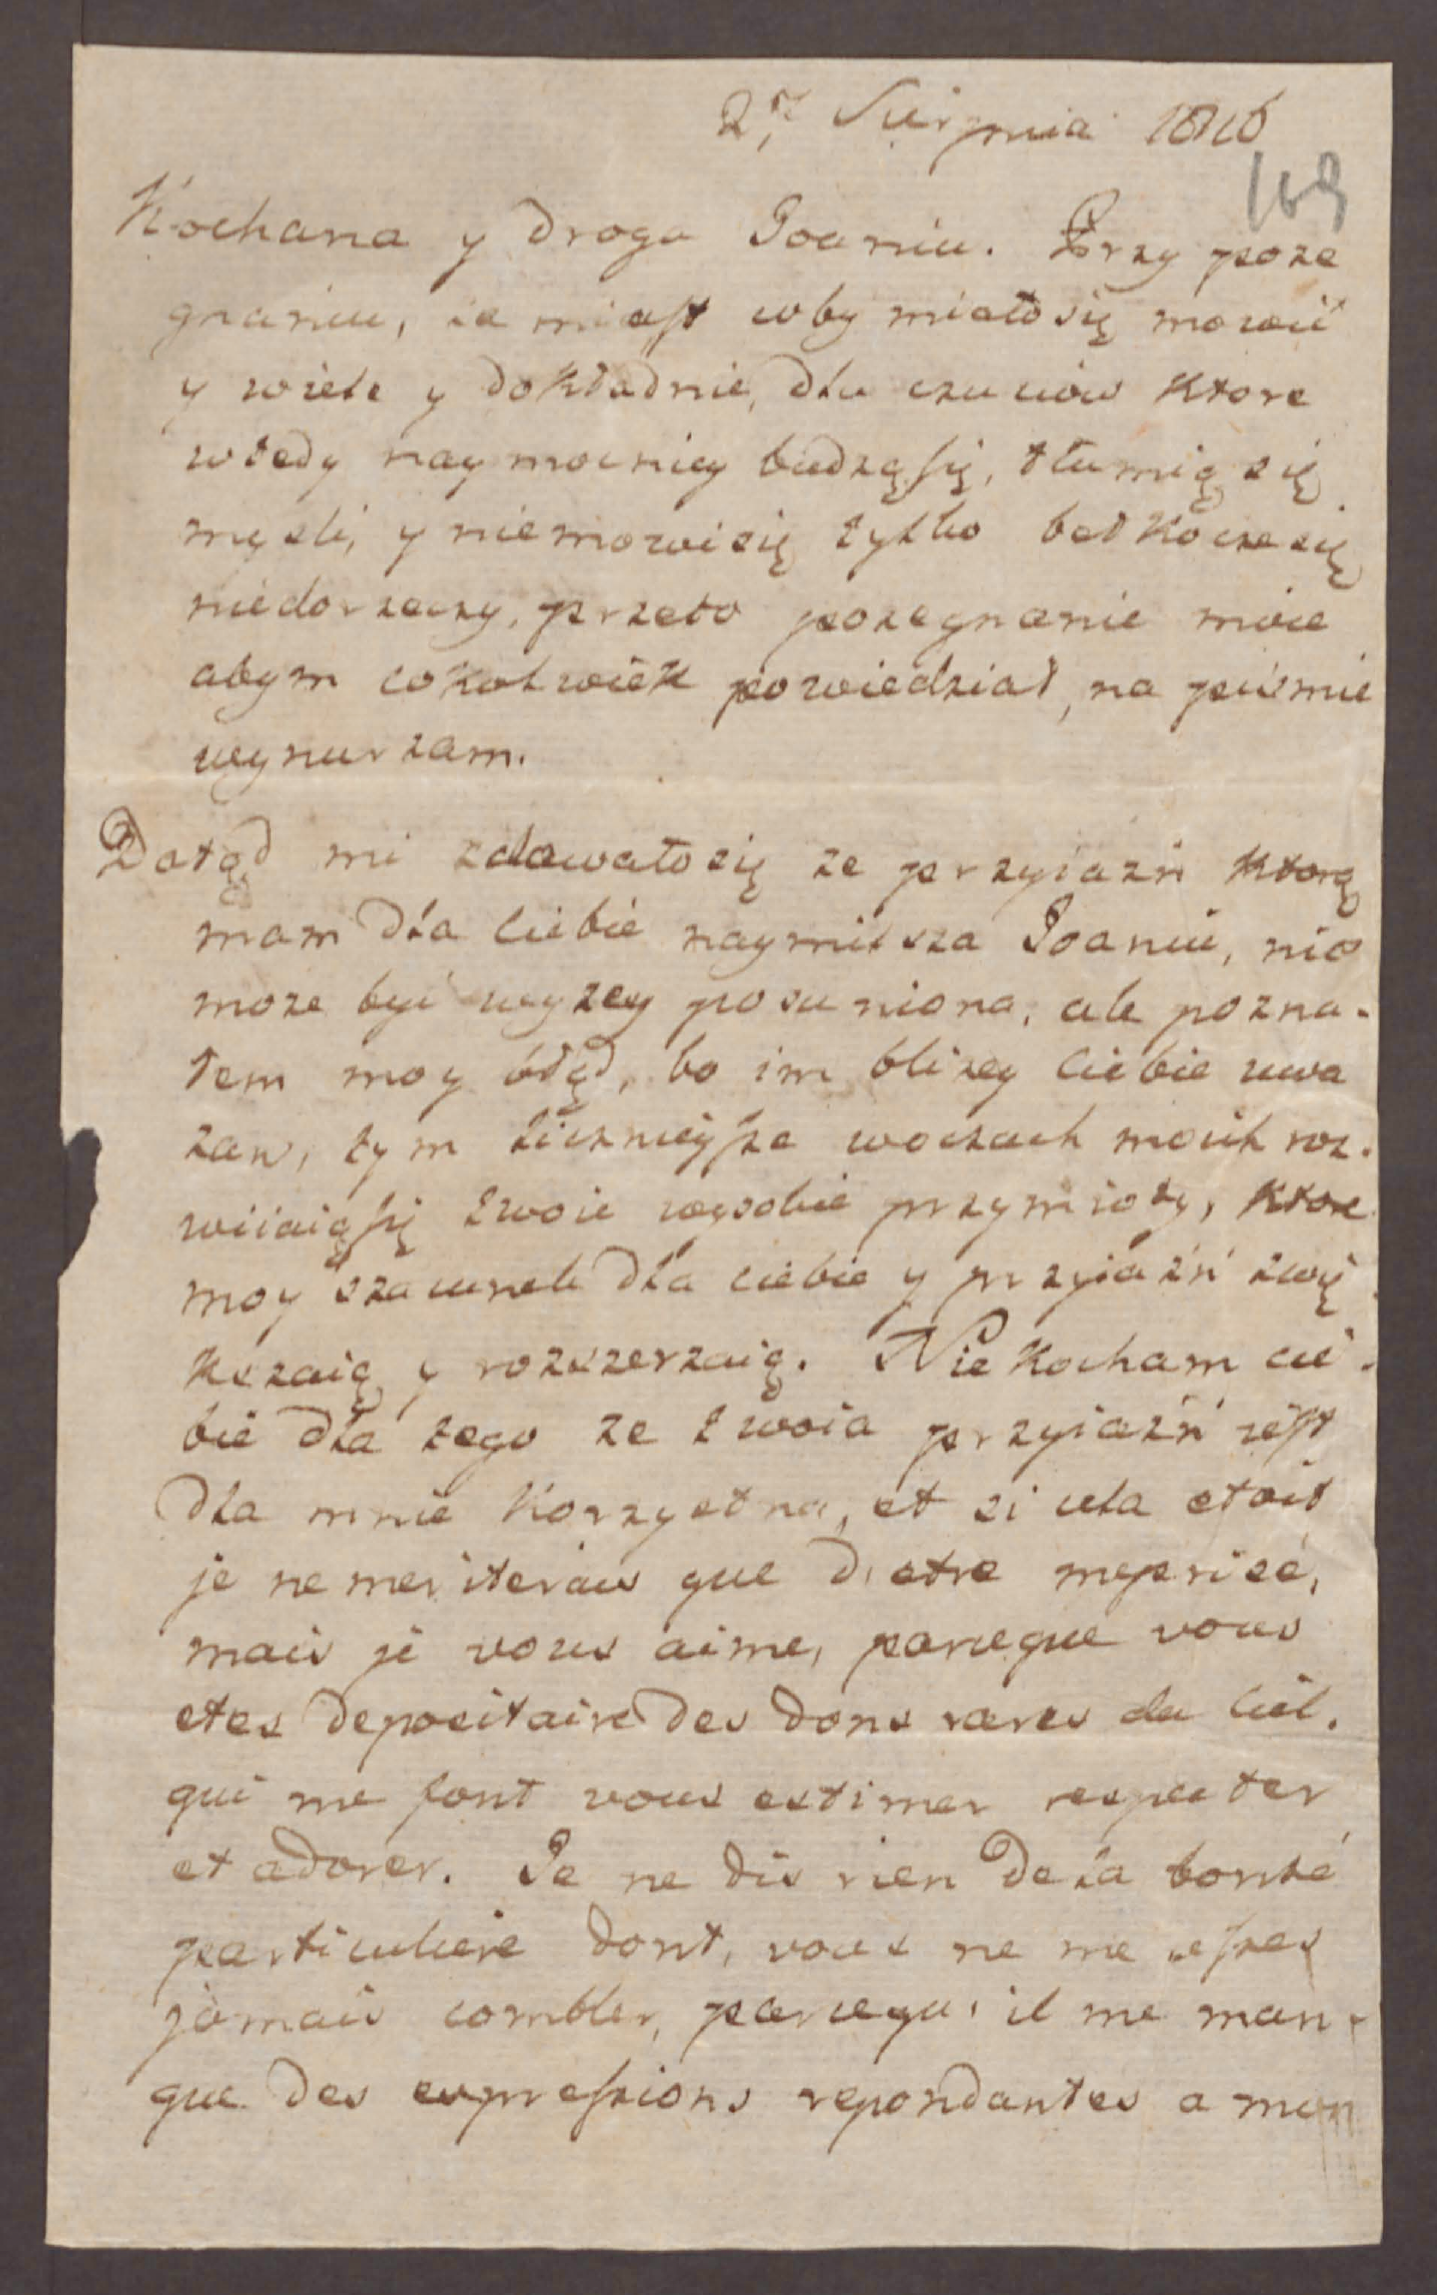 27 Sierpnia 1816
169
Kochana y droga Joaniu. Przy poże
gnaniu, za miast coby miało się mowić
y wiele y dokładnie, dla czuciow ktore
wtedy naymocniey budzą się, tłumią się
mysli, y niemowi się tylko bełkocze się
niedorzeczy, przeto pozegnanie moie
abym cokolwiek powiedział, na pismie
wynurzam.
Dotąd mi zdawało się ze przyiazń ktorą
mam dla Ciebie naymilsza Joaniu, nie
moze być wyzey posuniona, ale pozna-
łem moy błąd, bo im blizey Ciebie uwa
zam, tym licznieysze woczach moich roz-
wiiaią się twoie wysokie przymioty, ktore
moy szacunek dla ciebie y przyiaźń zwię
kszaią y rozszerzaią. Nie kocham cie-
bie dla tego ze twoia przyiaźń iest
dla mnie korzystna, et si cela etoit
je ne meriterais que d'etre meprisé,
mais je vous aime, parceque vous
etes depositaire des dons rares du Ciel.
qui me font vous estimer respecter
et adorer. Je ne dis rien de la bonté
particuliere dont, vous ne me cessez
jamais combler, parcequ'il me man-
que des expressions repondantes a mon